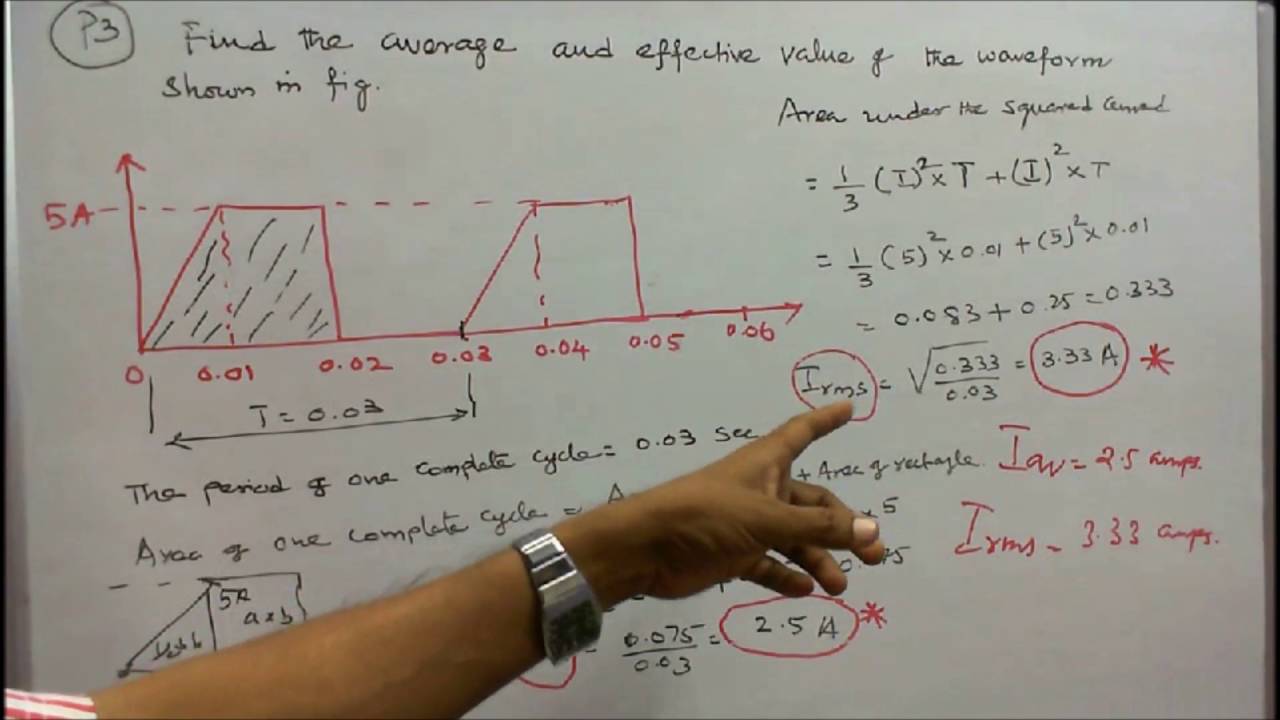 P3
Find the average and effective value of the waveform
shown in fig.
5A
0 0.01 0.02 0.03 0.04 0.05 0.06
T = 0.03
The period of one complete cycle = 0.03 sec
Area of one complete cycle = A
+ Area of rectangle.
× 5
5A
a×b
0.075
0.075/0.03 = 2.5 A *
Area under the squared
= 1/3 (I)² × T + (I)² × T
= 1/3 (5)² × 0.01 + (5)² × 0.01
= 0.083 + 0.25 = 0.333
Irms = √0.333/0.03 = 3.33 A *
Iav = 2.5 amps.
Irms = 3.33 amps.